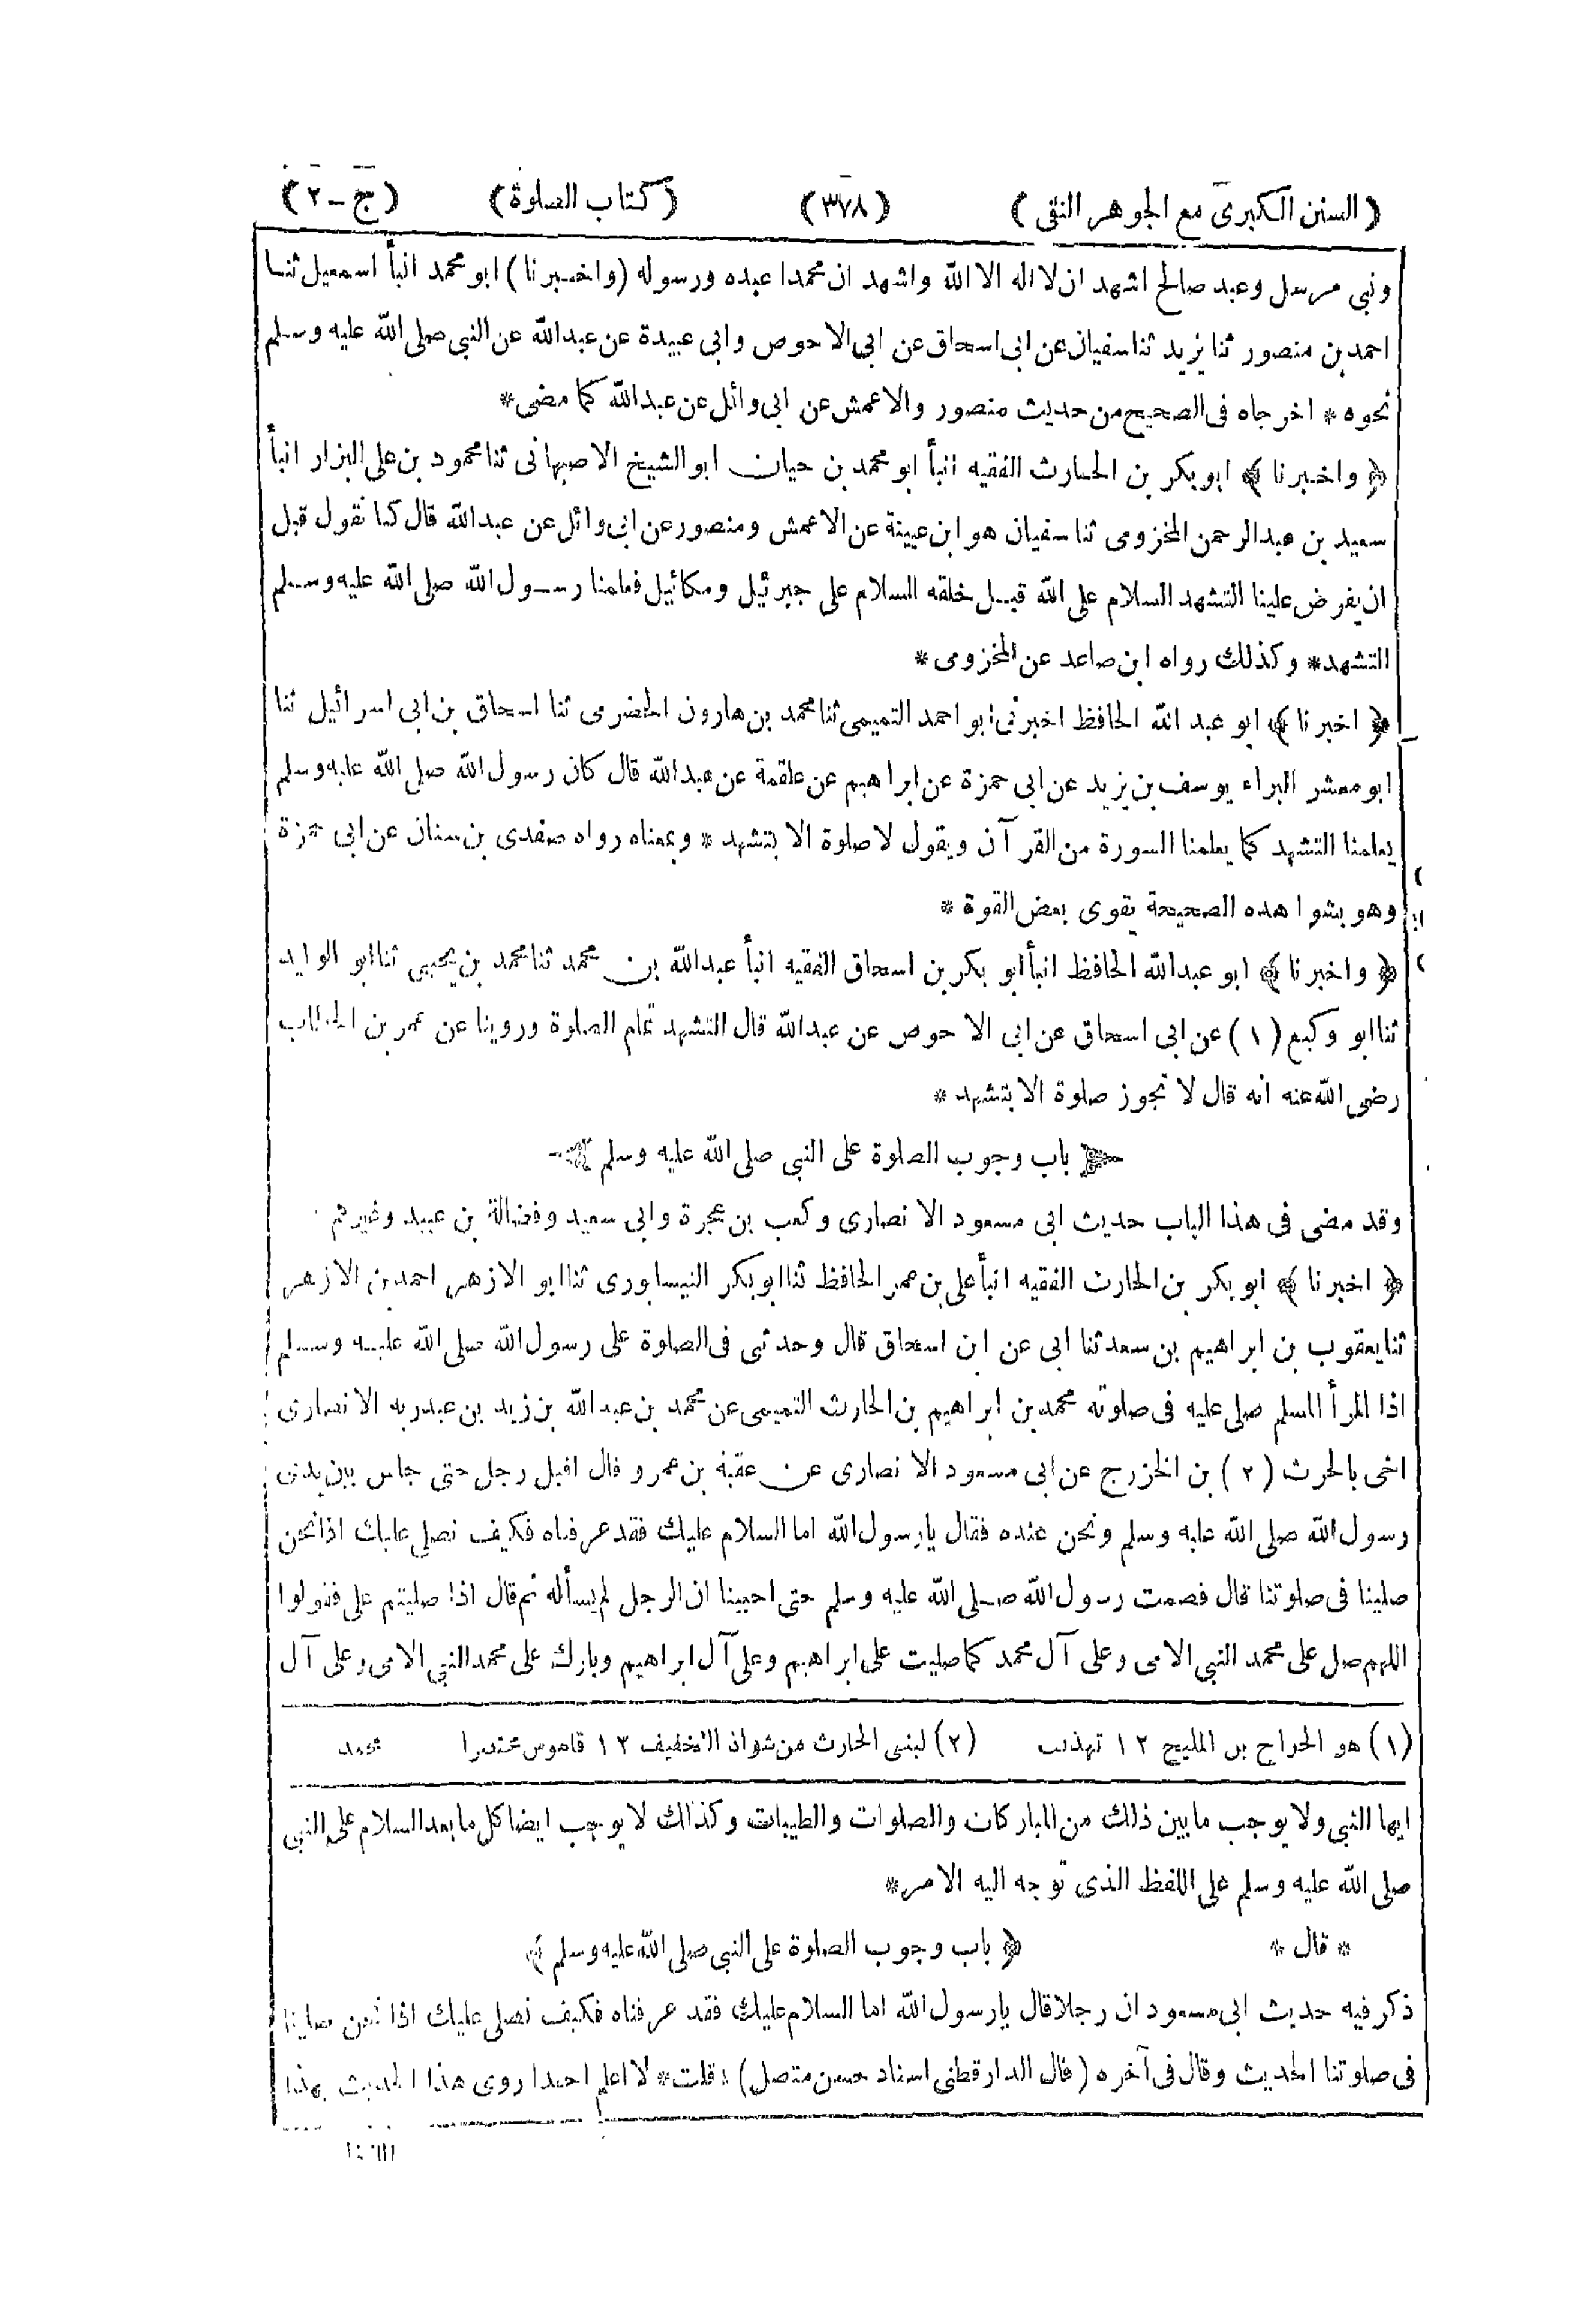 (السنن الكبرى مع الجوهر النقى) (٣٧٨) (كتاب الصلوة) (ج - ٢)
ونبى مرسل وعبد صالح اشهد ان لا اله الا الله واشهد ان محمدا عبده ورسوله (واخبرنا) ابو محمد انبأ اسمعيل ثنا
احمد بن منصور ثنا يزيد ثنا سفيان عن ابى اسحاق عن ابى الاحوص وابى عبيدة عن عبدالله عن النبى صلى الله عليه وسلم
نحوه * اخرجاه فى الصحيح من حديث منصور والاعمش عن ابى وائل عن عبدالله كما مضى *
﴿ واخبرنا ﴾ ابوبكر بن الحارث الفقيه انبأ ابو محمد بن حيان ابوالشيخ الاصبهانى ثنا محمود بن على البزار انبأ
سعيد بن عبدالرحمن المخزومى ثنا سفيان هو ابن عيينة عن الاعمش ومنصور عن ابى وائل عن عبدالله قال كنا نقول قبل
ان يفرض علينا التشهد السلام على الله قبل خلقه السلام على جبرئيل ومكائيل فعلمنا رسول الله صلى الله عليه وسلم
التشهد* وكذلك رواه ابن صاعد عن المخزومى *
﴿ اخبرنا ﴾ ابو عبد الله الحافظ اخبرنى ابو احمد التميمى ثنا محمد بن هارون الحضرمى ثنا اسحاق بن ابى اسرائيل ثنا
ابو معشر البراء يوسف بن يزيد عن ابى حمزة عن ابراهيم عن علقمة عن عبدالله قال كان رسول الله صلى الله عليه وسلم
يعلمنا التشهد كما يعلمنا السورة من القرآن ويقول لا صلوة الا بتشهد * وبمعناه رواه صغدى بن سنان عن ابى حمزة
وهو بشواهده الصحيحة يقوى بعض القوة *
﴿ واخبرنا ﴾ ابو عبدالله الحافظ انبأ ابو بكر بن اسحاق الفقيه انبأ عبدالله بن محمد ثنا محمد بن يحيى ثنا ابو الوليد
ثنا ابو وكيع (١) عن ابى اسحاق عن ابى الاحوص عن عبدالله قال التشهد تمام الصلوة وروينا عن عمر بن الخطاب
رضى الله عنه انه قال لا تجوز صلوة الا بتشهد *
باب وجوب الصلوة على النبى صلى الله عليه وسلم
وقد مضى فى هذا الباب حديث ابى مسعود الانصارى وكعب بن عجرة وابى سعيد وفضالة بن عبيد وغيرهم
﴿ اخبرنا ﴾ ابو بكر بن الحارث الفقيه انبأ على بن عمر الحافظ ثنا ابو بكر النيسابورى ثنا ابو الازهر احمد بن الازهر
ثنا يعقوب بن ابراهيم بن سعد ثنا ابى عن ابن اسحاق قال وحدثنى فى الصلوة على رسول الله صلى الله عليه وسلم
اذا المرأ المسلم صلى عليه فى صلوته محمد بن ابراهيم بن الحارث التميمى عن محمد بن عبدالله بن زيد بن عبدربه الانصارى
اخى بالحرث (٢) بن الخزرج عن ابى مسعود الانصارى عن عقبة بن عمرو قال اقبل رجل حتى جلس بين يدى
رسول الله صلى الله عليه وسلم ونحن عنده فقال يا رسول الله اما السلام عليك فقد عرفناه فكيف نصلى عليك اذا نحن
صلينا فى صلوتنا قال فصمت رسول الله صلى الله عليه وسلم حتى احببنا ان الرجل لم يسأله ثم قال اذا صليتم على فقولوا
اللهم صل على محمد النبى الامى وعلى آل محمد كما صليت على ابراهيم وعلى آل ابراهيم وبارك على محمد النبى الامى وعلى آل
(١) هو الجراح بن المليح ١٢ تهذيب (٢) لبنى الحارث من شواذ التخفيف ١٢ قاموس مختصرا محمد
ايها النبى ولا يوجب ما بين ذلك من المباركات والصلوات والطيبات وكذلك لا يوجب ايضا كل ما بعد السلام على النبى
صلى الله عليه وسلم على اللفظ الذى توجه اليه الامر*
* قال * ﴿ باب وجوب الصلوة على النبى صلى الله عليه وسلم ﴾
ذكر فيه حديث ابى مسعود ان رجلا قال يا رسول الله اما السلام عليك فقد عرفناه فكيف نصلى عليك اذا نحن صلينا
فى صلوتنا الحديث وقال فى آخره (قال الدارقطنى اسناد حسن متصل) * قلت* لا اعلم احدا روى هذا الحديث بهذا